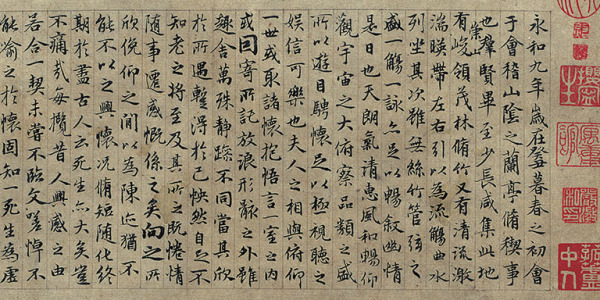 永和九年歲在癸丑暮春之初會
于會稽山陰之蘭亭脩稧事
也群賢畢至少長咸集此地
有崇山峻領茂林脩竹又有清流激
湍暎帶左右引以為流觴曲水
列坐其次雖無絲竹管弦之
盛一觴一詠亦足以暢敘幽情
是日也天朗氣清惠風和暢仰
觀宇宙之大俯察品類之盛
所以遊目騁懷足以極視聽之
娛信可樂也夫人之相與俯仰
一世或取諸懷抱悟言一室之內
或因寄所託放浪形骸之外雖
趣舍萬殊靜躁不同當其欣
於所遇蹔得於己怏然自足不
知老之將至及其所之既惓情
隨事遷感慨係之矣向之所
欣俛仰之間以為陳迹猶不
能不以之興懷況脩短隨化終
期於盡古人云死生亦大矣豈
不痛哉每攬昔人興感之由
若合一契未嘗不臨文嗟悼不
能喻之於懷固知一死生為虛